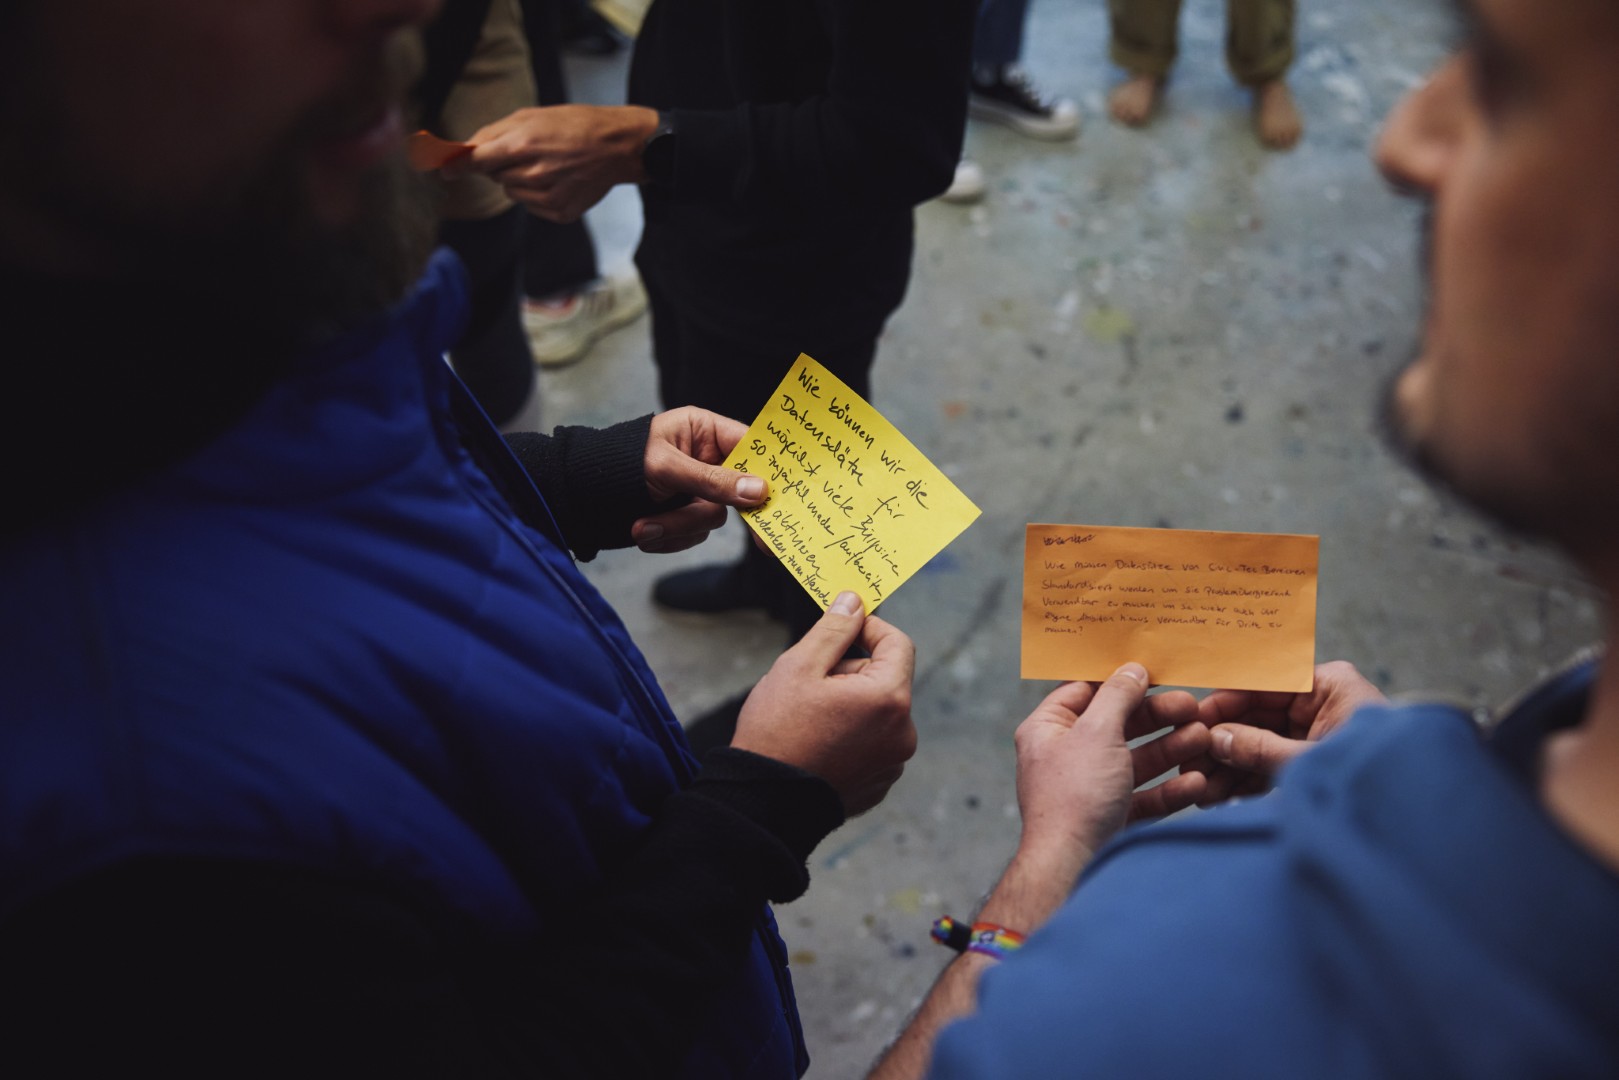 Wie können wir die
Datenschätze für
möglichst viele Bürger:innen
so zugänglich machen/aufbereiten,
aktivieren
zum Hande
Wie müssen Datensätze von Civic-Tec Bereichen
Standardisiert werden um sie Problemübergreifend
Verwendbar zu machen um sie mehr auch über
eigne hinaus verwendbar für Dritte zu
machen?